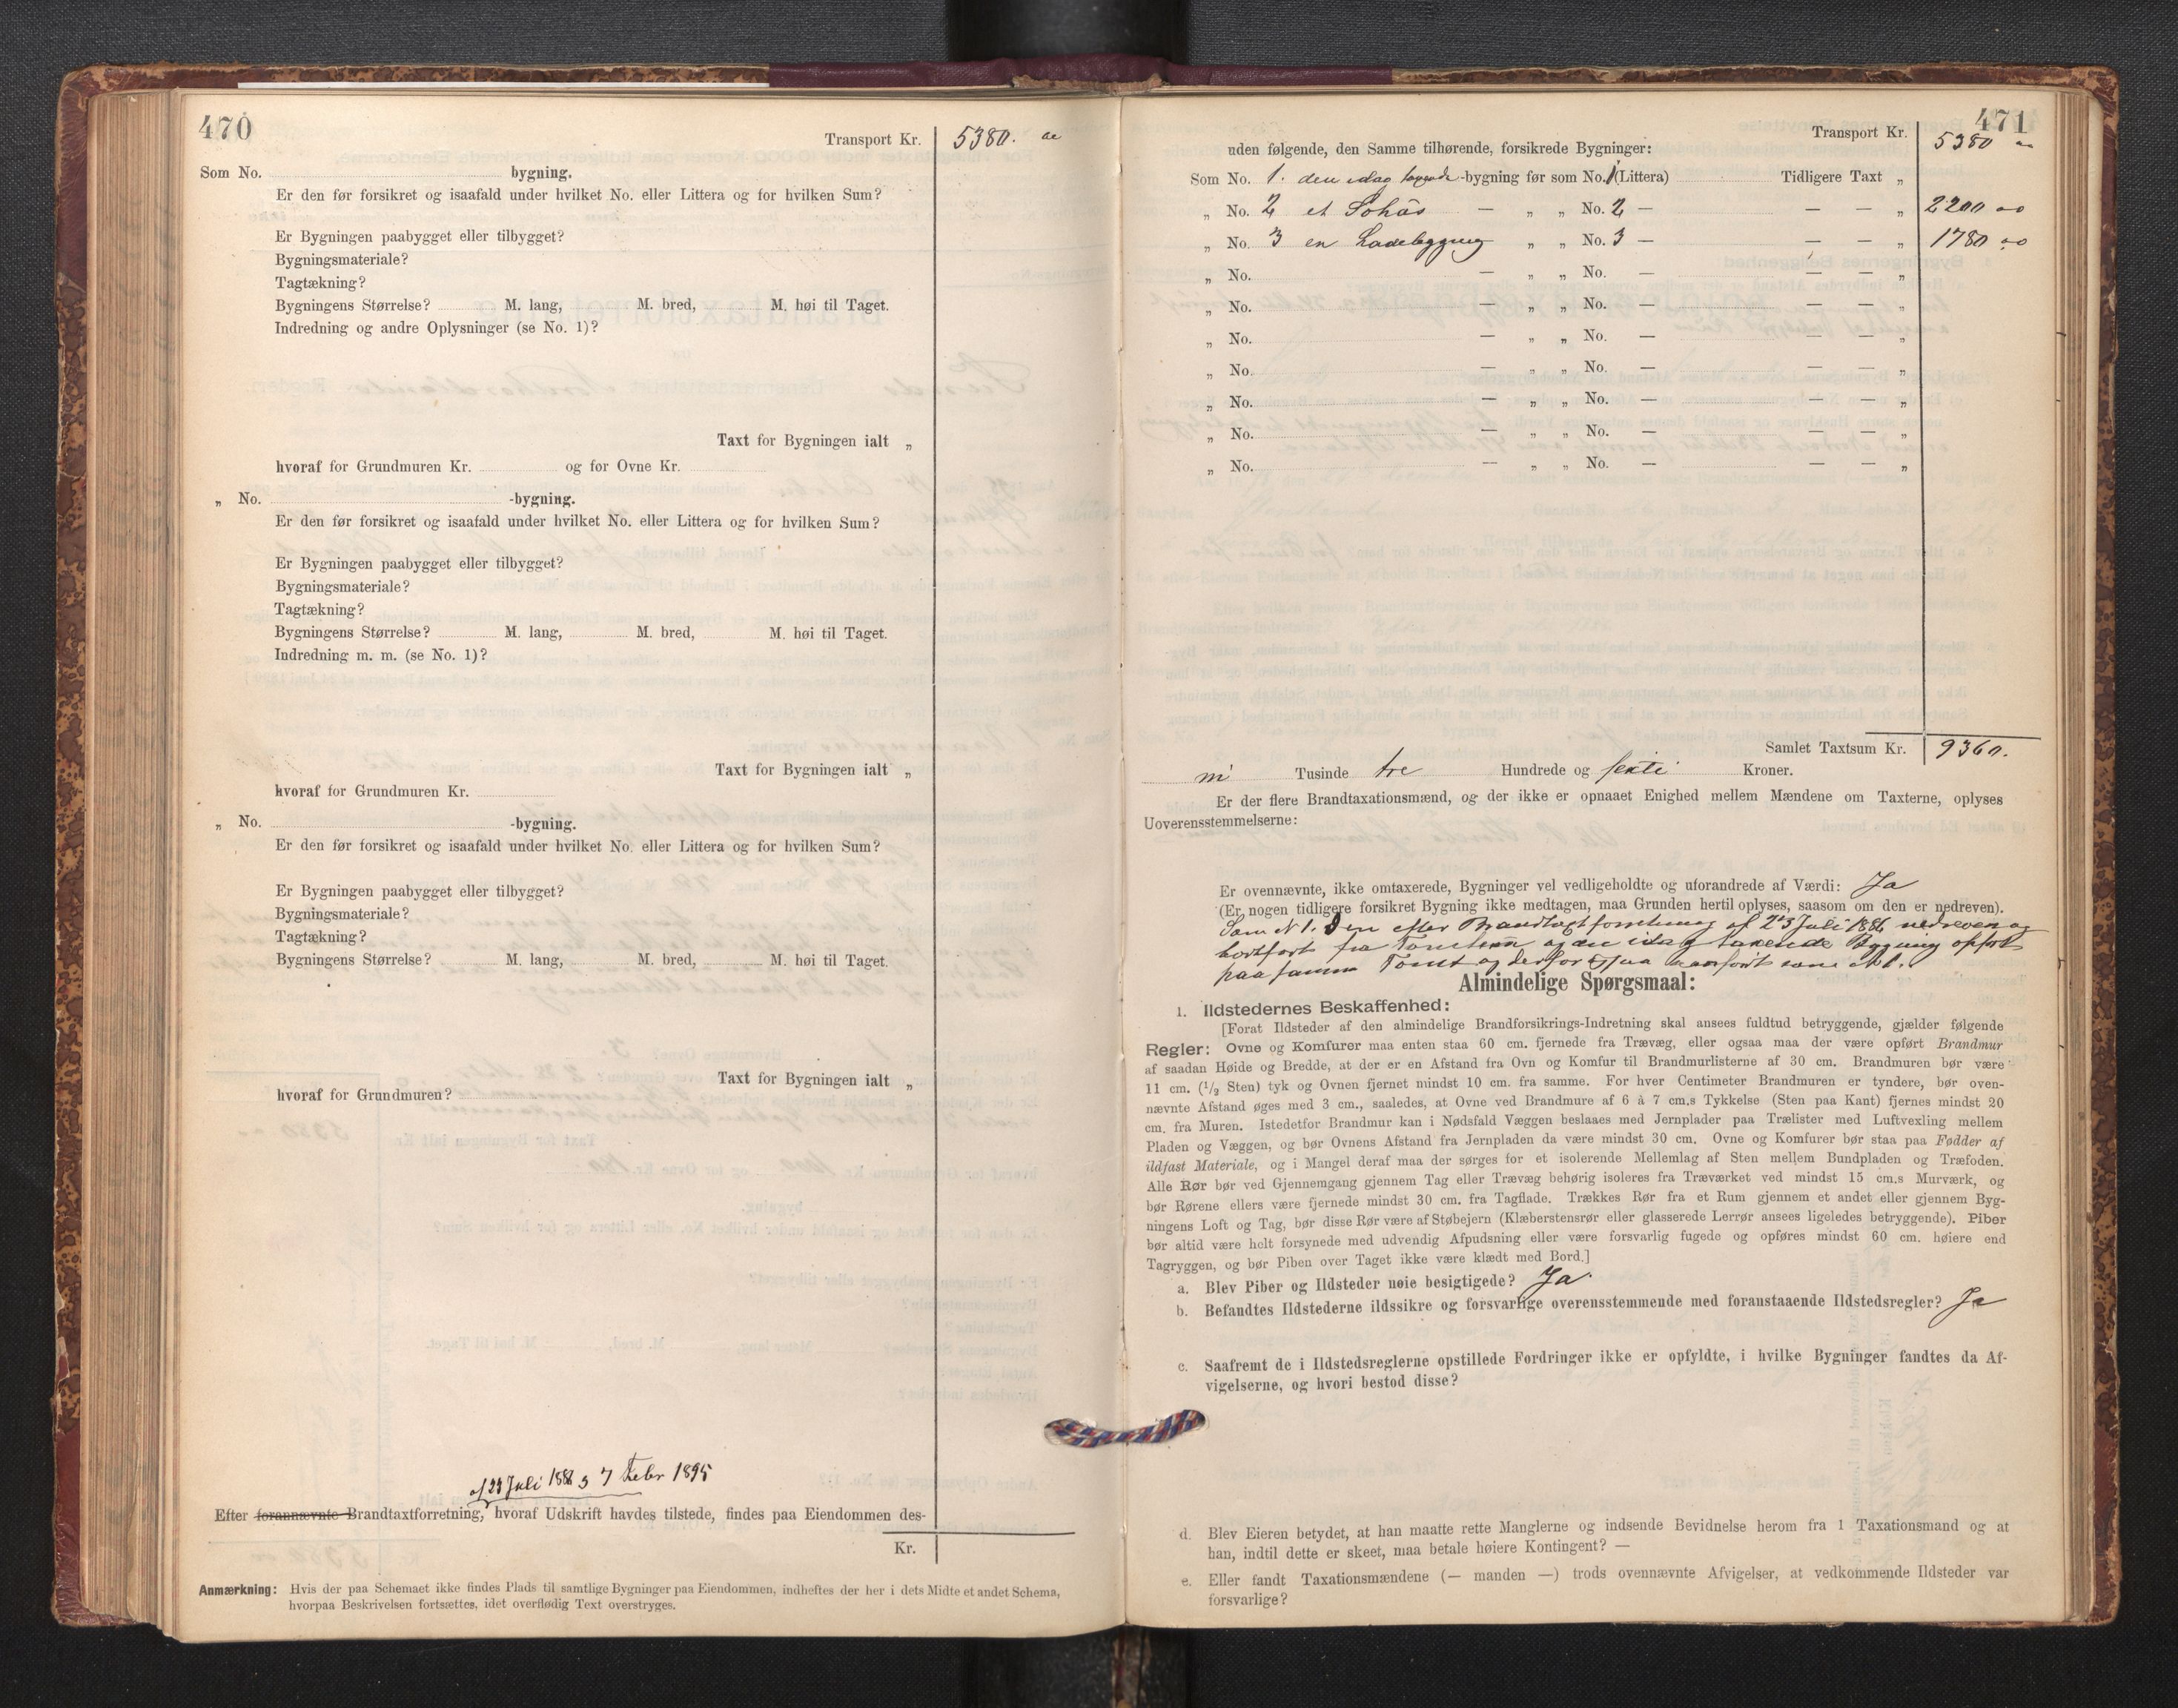 470
Transport Kr. 5380.
Som No. bygning.
Er den før forsikret og isaafald under hvilket No. eller Littera og for hvilken Sum?
Er Bygningen paabygget eller tilbygget?
Bygningsmateriale?
Tagtækning?
Bygningens Størrelse? M. lang, M. bred, M. høi til Taget.
Indredning og andre Oplysninger (se No. 1)?
Taxt for Bygningen ialt „
hvoraf for Grundmuren Kr. og for Ovne Kr.
„ No. -bygning.
Er den før forsikret og isaafald under hvilket No. eller Littera og for hvilken Sum?
Er Bygningen paabygget eller tilbygget?
Bygningsmateriale?
Tagtækning?
Bygningens Størrelse? M. lang, M. bred, M. høi til Taget.
Indredning m. m. (se No. 1)?
Taxt for Bygningen ialt „
hvoraf for Grundmuren Kr.
„ No. -bygning.
Er den før forsikret og isaafald under hvilket No. eller Littera og for hvilken Sum?
Er Bygningen paabygget eller tilbygget?
Bygningsmateriale?
Tagtækning?
Bygningens Størrelse? M. lang, M. bred, M. høi til Taget.
Taxt for Bygningen ialt „
hvoraf for Grundmuren?
af 23 Juli 1886 & 7 Febr 1895
Efter forannævnte Brandtaxtforretning, hvoraf Udskrift havdes tilstede, findes paa Eiendommen des-
Kr.
Anmærkning: Hvis der paa Schemaet ikke findes Plads til samtlige Bygninger paa Eiendommen, indheftes der her i dets Midte et andet Schema,
hvorpaa Beskrivelsen fortsættes, idet overflødig Text overstryges.
471
Transport Kr. 5380
uden følgende, den Samme tilhørende, forsikrede Bygninger:
Som No. 1. den idag -bygning før som No. 1 (Littera) Tidligere Taxt „
„ No. 2 et — „ „ No. 2 — — — „ 2200 00
„ No. 3 en Ladebygging „ „ No. 3 — — — „ 1780 00
„ No. — „ „ No. — — — „
„ No. — „ „ No. — — — „
„ No. — „ „ No. — — — „
„ No. — „ „ No. — — — „
„ No. — „ „ No. — — — „
„ No. — „ „ No. — — — „
„ No. — „ „ No. — — — „
Samlet Taxtsum Kr. 9360.
ni Tusinde tre Hundrede og sexti Kroner.
Er der flere Brandtaxationsmænd, og der ikke er opnaaet Enighed mellem Mændene om Taxterne, oplyses
Uoverensstemmelserne:
Er ovennævnte, ikke omtaxerede, Bygninger vel vedligeholdte og uforandrede af Værdi: Ja
(Er nogen tidligere forsikret Bygning ikke medtagen, maa Grunden hertil oplyses, saasom om den er nedreven).
Som N 1. Den efter Brandtaxtforretning af 23 Juli 1886 nedreven og
bortført fra Tomten og den idag taxerede Bygning opført
paa samme Tomt og derfor anført som N 1.
Almindelige Spørgsmaal:
1. Ildstedernes Beskaffenhed:
[Forat Ildsteder af den almindelige Brandforsikrings-Indretning skal ansees fuldtud betryggende, gjælder følgende
Regler: Ovne og Komfurer maa enten staa 60 cm. fjernede fra Trævæg, eller ogsaa maa der være opført Brandmur
af saadan Høide og Bredde, at der er en Afstand fra Ovn og Komfur til Brandmurlisterne af 30 cm. Brandmuren bør være
11 cm. (1/2 Sten) tyk og Ovnen fjernet mindst 10 cm. fra samme. For hver Centimeter Brandmuren er tyndere, bør oven-
nævnte Afstand øges med 3 cm., saaledes, at Ovne ved Brandmure af 6 à 7 cm.s Tykkelse (Sten paa Kant) fjernes mindst 20
cm. fra Muren. Istedetfor Brandmur kan i Nødsfald Væggen beslaaes med Jernplader paa Trælister med Luftvexling mellem
Pladen og Væggen, og bør Ovnens Afstand fra Jernpladen da være mindst 30 cm. Ovne og Komfurer bør staa paa Fødder af
ildfast Materiale, og i Mangel deraf maa der sørges for et isolerende Mellemlag af Sten mellem Bundpladen og Træfoden.
Alle Rør bør ved Gjennemgang gjennem Tag eller Trævæg behørig isoleres fra Træværket ved mindst 15 cm.s Murværk, og
bør Rørene ellers være fjernede mindst 30 cm. fra Tagflade. Trækkes Rør fra et Rum gjennem et andet eller gjennem Byg-
ningens Loft og Tag, bør disse Rør være af Støbejern (Klæberstensrør eller glasserede Lerrør ansees ligeledes betryggende). Piber
bør altid være helt forsynede med udvendig Afpudsning eller være forsvarlig fugede og opføres mindst 60 cm. høiere end
Tagryggen, og bør Piben over Taget ikke være klædt med Bord.]
a. Blev Piber og Ildsteder nøie besigtigede? Ja
b. Befandtes Ildstederne ildssikre og forsvarlige overensstemmende med foranstaaende Ildstedsregler? Ja
c. Saafremt de i Ildstedsreglerne opstillede Fordringer ikke er opfyldte, i hvilke Bygninger fandtes da Af-
vigelserne, og hvori bestod disse?
d. Blev Eieren betydet, at han maatte rette Manglerne og indsende Bevidnelse herom fra 1 Taxationsmand og at
han, indtil dette er skeet, maa betale høiere Kontingent? —
e. Eller fandt Taxationsmændene (— manden —) trods ovennævnte Afvigelser, at vedkommende Ildsteder var
forsvarlige?